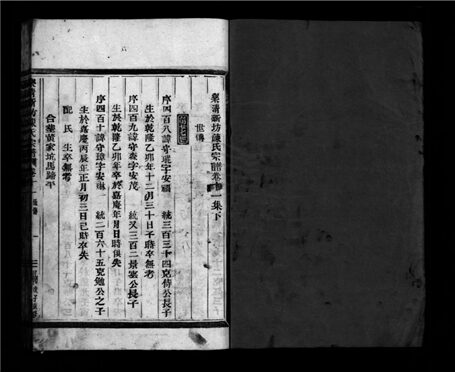 樂清新坊陳氏宗譜卷十一集下
世傳
序四百八諱守琨字安福 統三百三十四克侍公長子
生於乾隆乙卯年十二月三十日子時卒無考
序四百九諱守森字安茂 統又三百二景塞公長子
生於乾隆乙卯年卒於嘉慶年月日時俱失
序四百十諱守璋字安琳 統二百六十五克勉公之子
生於嘉慶丙辰年正月初三日巳時卒失
配氏生卒無考
合葬黃家坑馬蹄平